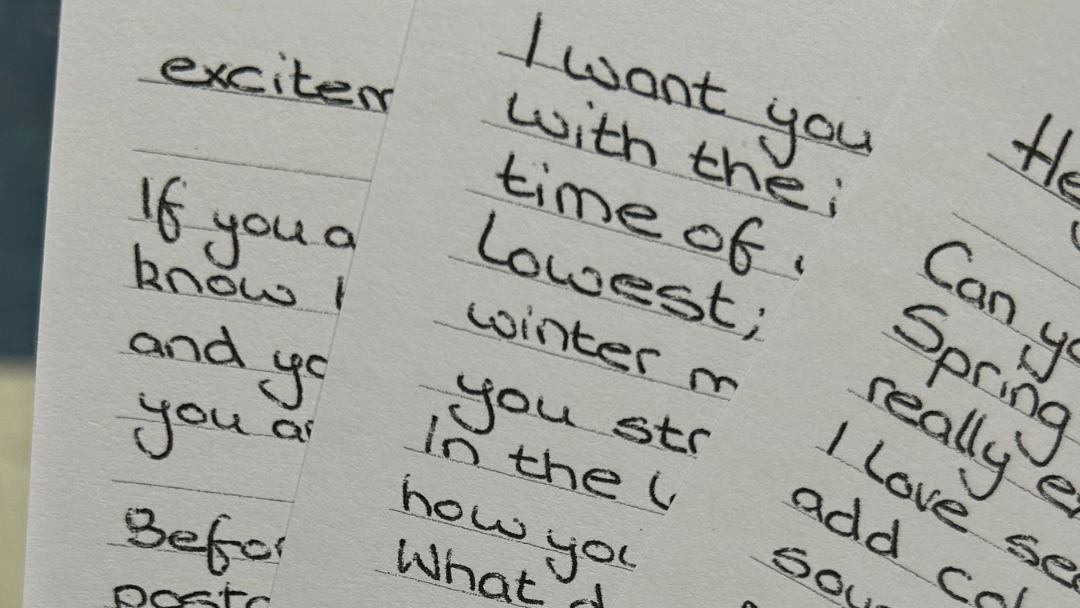 excitem
If you a
know
and yo
you a
Befor
postc
I want you
with the i
time of
Lowest;
winter m
you str
In the
how you
What d
He
Can yo
Spring
really e
I Love se
add col
sou